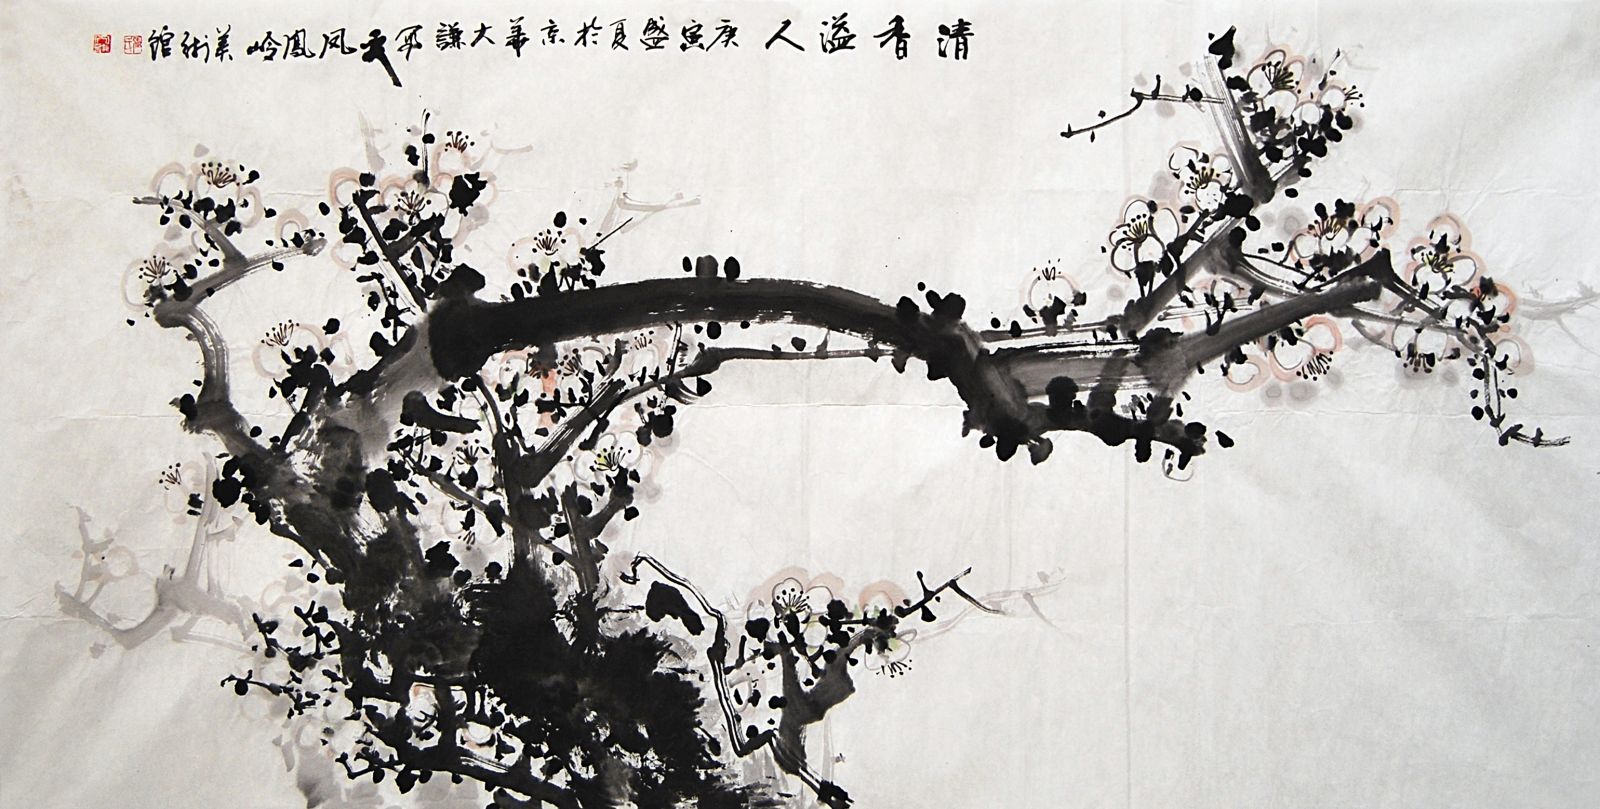 清香溢人 庚寅盛夏於京華大謙寫于凤凰岭美術館